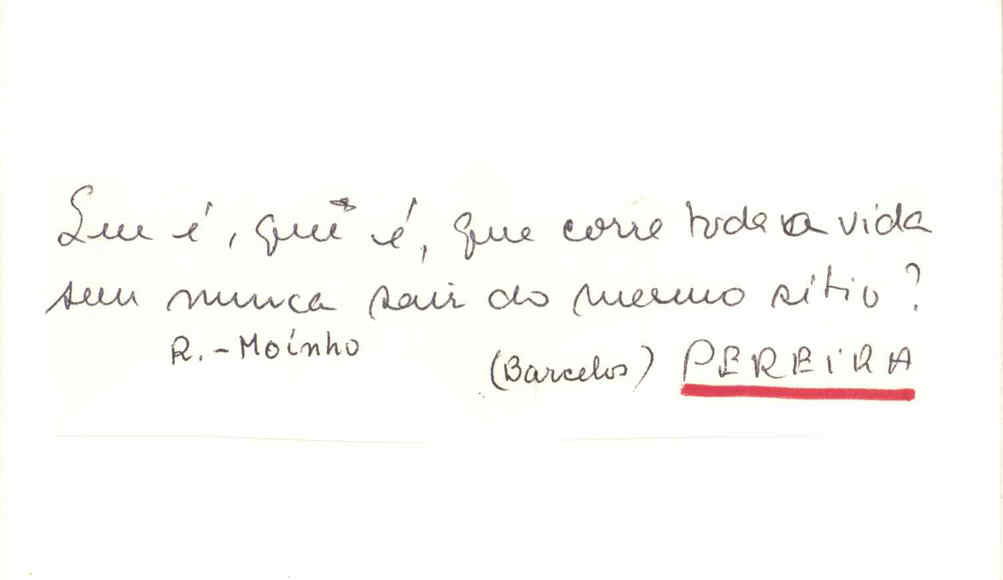 Que é, que é, que corre toda a vida
sem nunca sair do mesmo sítio?
R. - Moínho
(Barcelos) PEREIRA